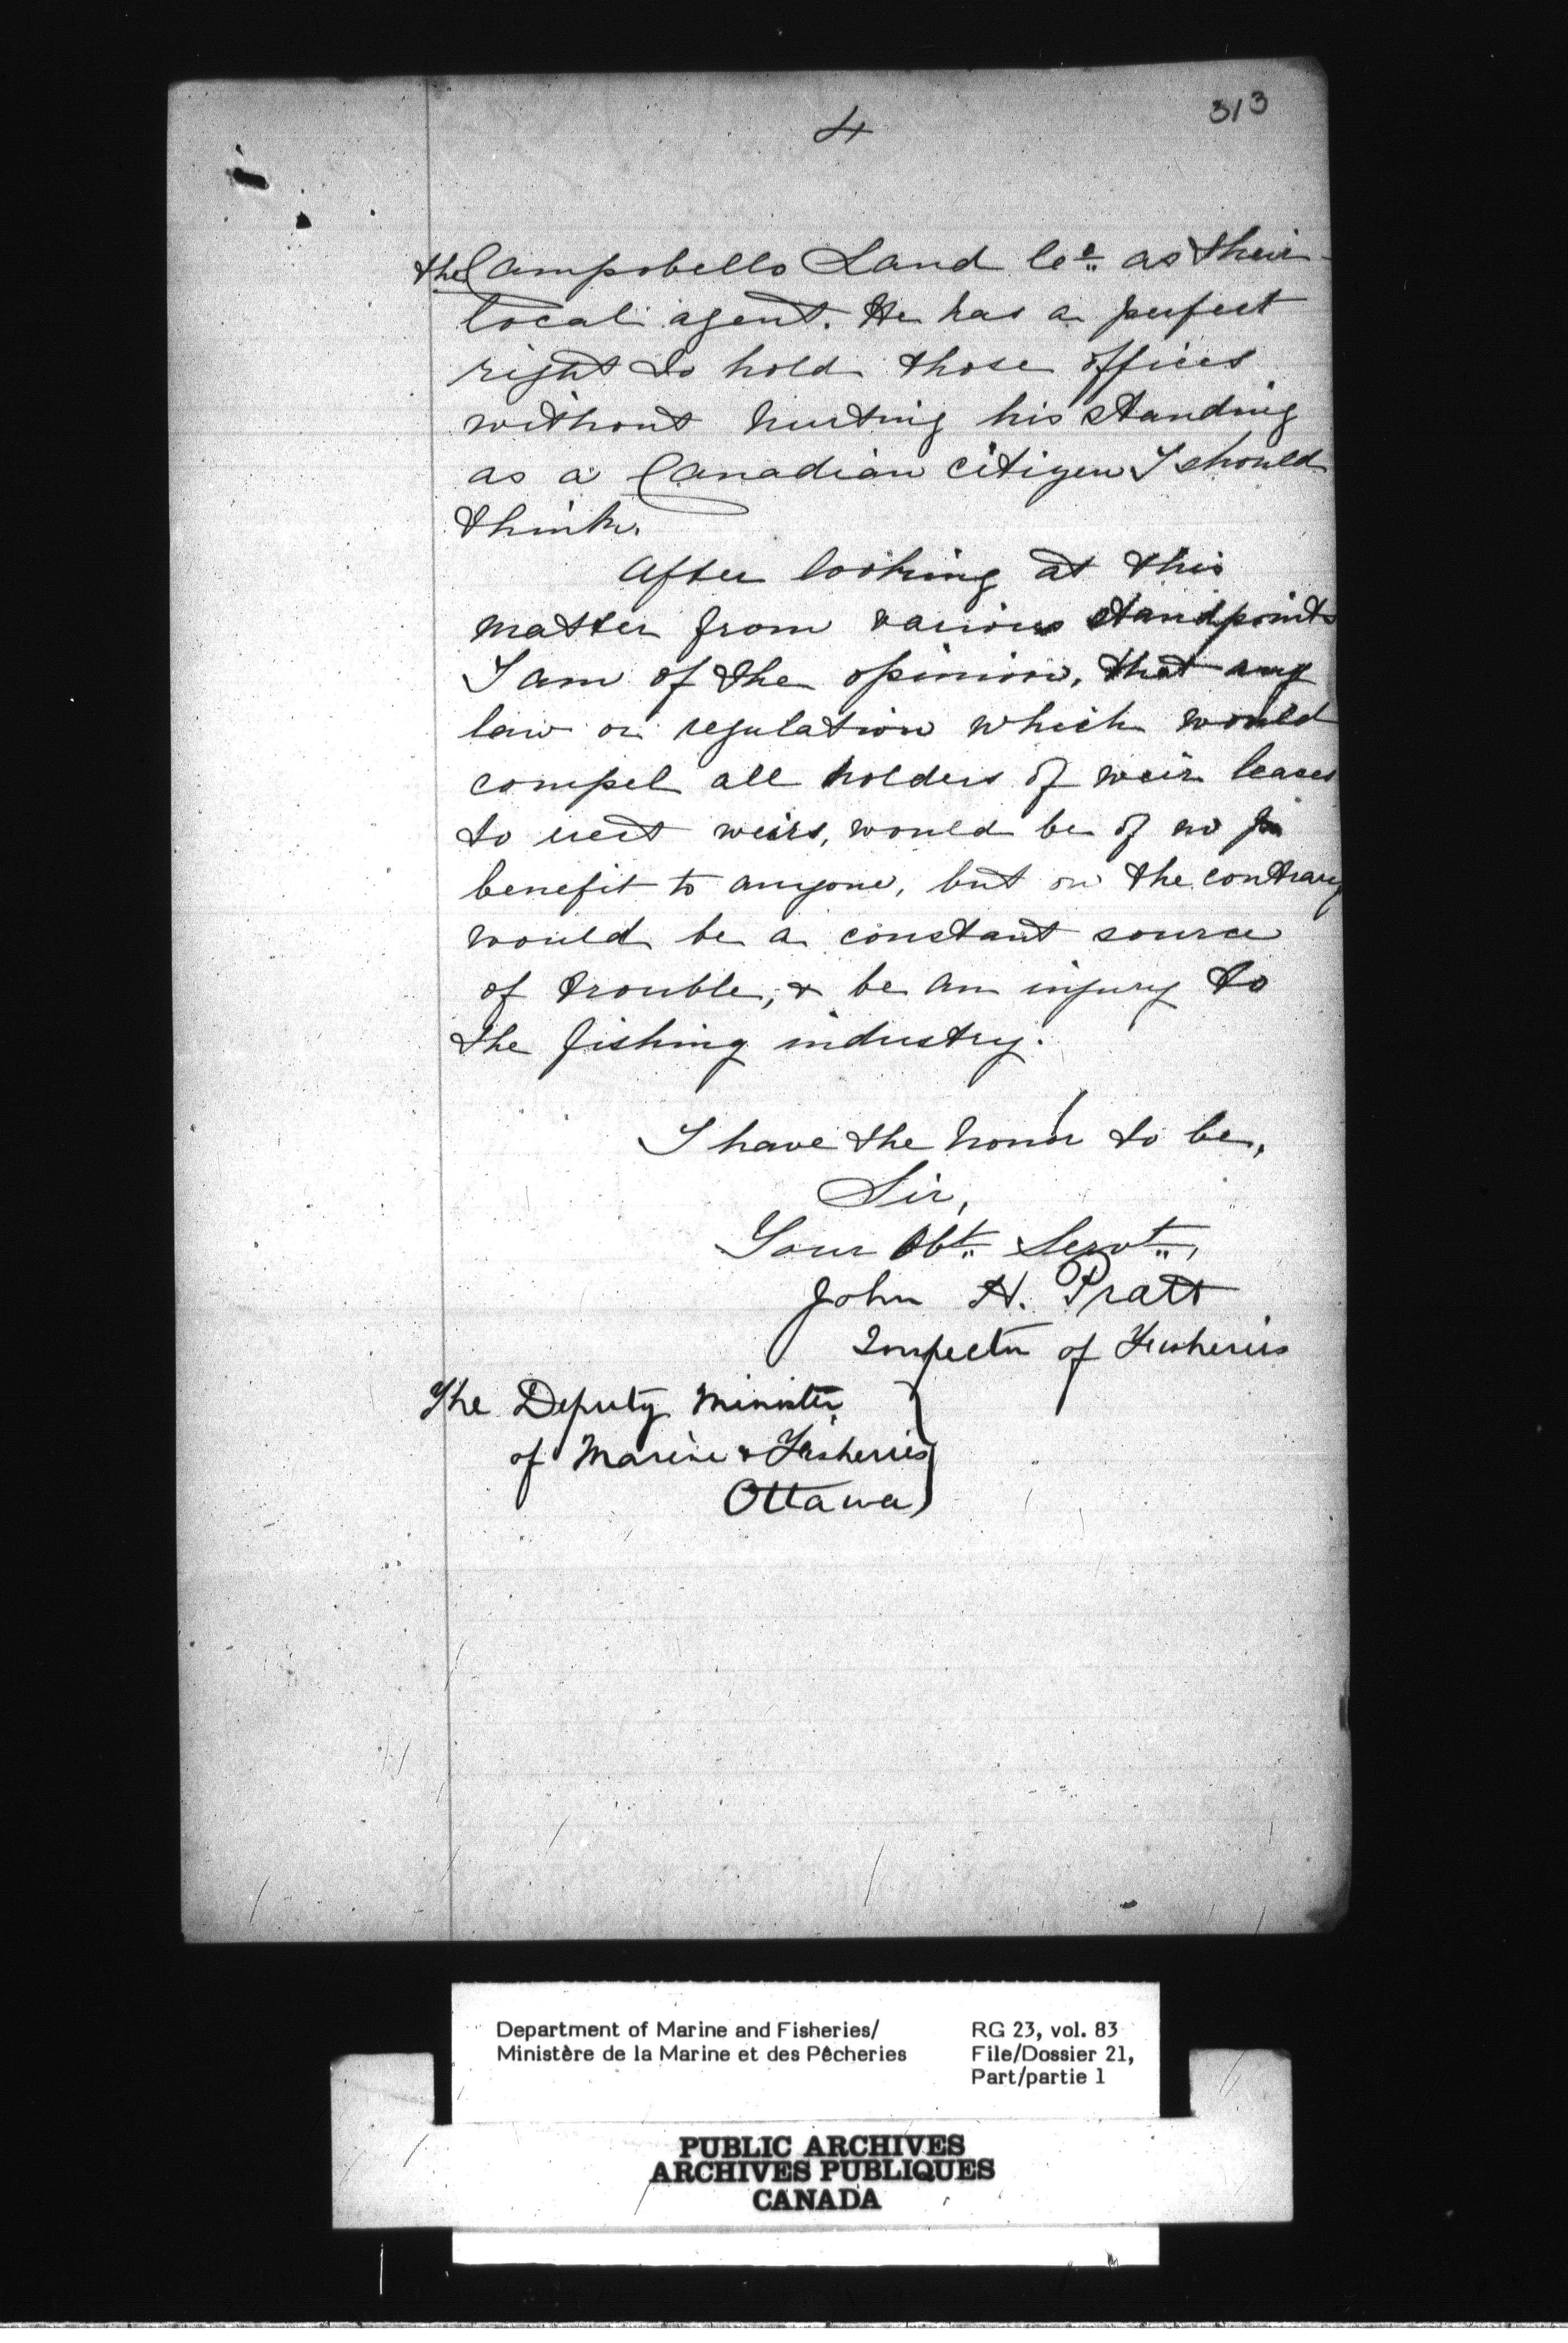 4
313
the Campobello Land Co. as their
local agent. He has a perfect
right to hold those offices
without hurting his standing
as a Canadian citizen I should
think.
After looking at this
matter from various standpoints
I am of the opinion, that any
law or regulation which would
compel all holders of weir leases
to erect weirs, would be of no
benefit to anyone, but on the contrary
would be a constant source
of trouble, & be an injury to
the fishing industry.
I have the honor to be,
Sir,
Your Obt. Servt.,
John H. Pratt
Inspector of Fisheries
The Deputy Minister
of Marine & Fisheries
Ottawa
Department of Marine and Fisheries/ RG 23, vol. 83
Ministère de la Marine et des Pêcheries File/Dossier 21,
Part/partie 1
PUBLIC ARCHIVES
ARCHIVES PUBLIQUES
CANADA